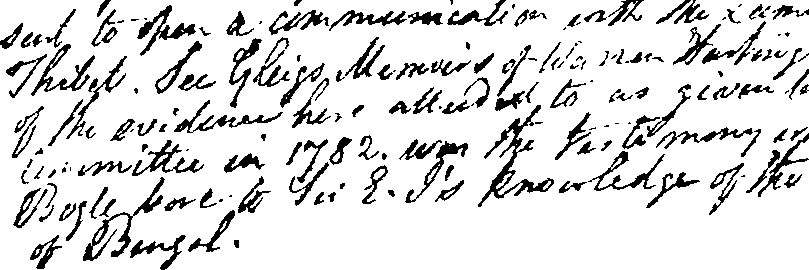 sent to open a communication with the Lama
Thibet. See Gleigs Memoirs of Warren Hasting
of the evidence here alluded to as given
Committee in 1782. was the testimony
Bogle bore to Sir E. I's knowledge of the
of Bengal.